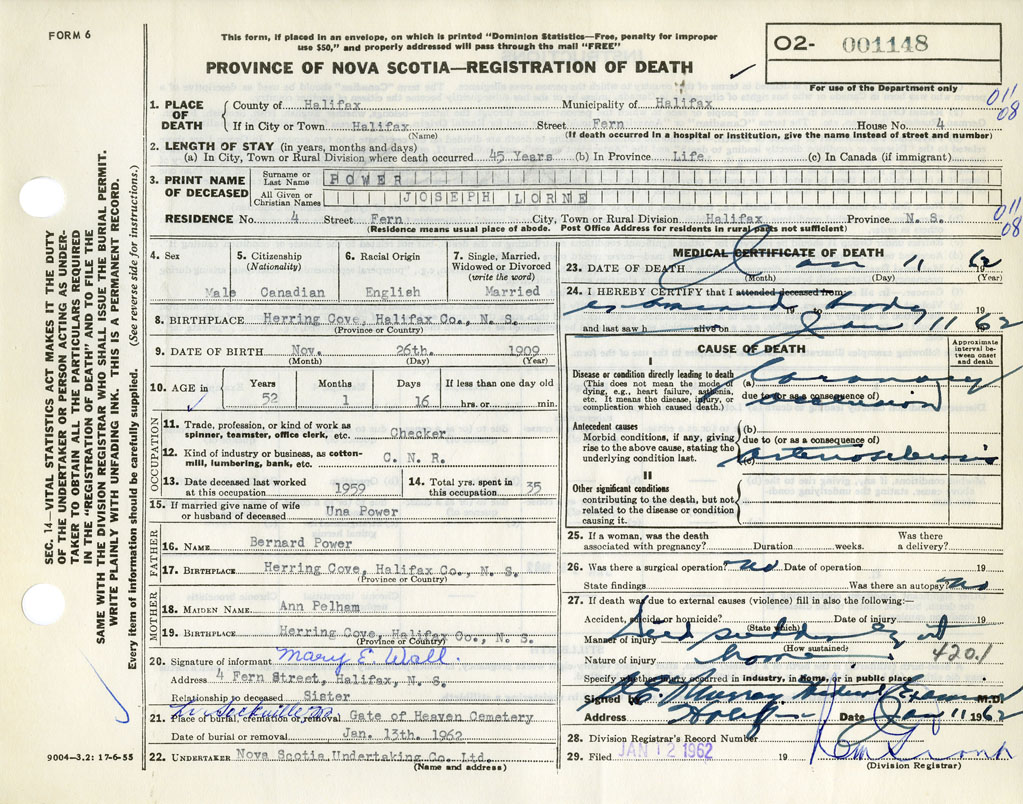 FORM 6
This form, if placed in an envelope, on which is printed "Dominion Statistics—Free, penalty for improper
use $50," and properly addressed will pass through the mail "FREE"
PROVINCE OF NOVA SCOTIA—REGISTRATION OF DEATH
O2- 001148
For use of the Department only
SEC. 14—VITAL STATISTICS ACT MAKES IT THE DUTY
OF THE UNDERTAKER OR PERSON ACTING AS UNDER-
TAKER TO OBTAIN ALL THE PARTICULARS REQUIRED
IN THE "REGISTRATION OF DEATH" AND TO FILE THE
SAME WITH THE DIVISION REGISTRAR WHO SHALL ISSUE THE BURIAL PERMIT.
WRITE PLAINLY WITH UNFADING INK. THIS IS A PERMANENT RECORD.
Every item of information should be carefully supplied. (See reverse side for instructions.)
1. PLACE OF DEATH
County of Halifax Municipality of Halifax
011
08
If in City or Town Halifax Street Fern House No. 4
(Name) (If death occurred in a hospital or institution, give the name instead of street and number)
2. LENGTH OF STAY (in years, months and days)
(a) In City, Town or Rural Division where death occurred 45 Years (b) In Province Life (c) In Canada (if immigrant)
3. PRINT NAME OF DECEASED
Surname or Last Name POWER
All Given or Christian Names JOSEPH LORNE
RESIDENCE No. 4 Street Fern City, Town or Rural Division Halifax Province N. S.
011
08
(Residence means usual place of abode. Post Office Address for residents in rural parts not sufficient)
4. Sex 5. Citizenship (Nationality) 6. Racial Origin 7. Single, Married, Widowed or Divorced (write the word)
Male Canadian English Married
8. BIRTHPLACE Herring Cove, Halifax Co., N. S.
(Province or Country)
9. DATE OF BIRTH Nov. 26th. 1909
(Month) (Day) (Year)
10. AGE in Years Months Days If less than one day old
52 1 16 hrs. or min.
OCCUPATION
11. Trade, profession, or kind of work as
spinner, teamster, office clerk, etc. Checker
12. Kind of industry or business, as cotton-
mill, lumbering, bank, etc. C. N. R.
13. Date deceased last worked
at this occupation 1959
14. Total yrs. spent in
this occupation 35
15. If married give name of wife
or husband of deceased Una Power
FATHER
16. NAME Bernard Power
17. BIRTHPLACE Herring Cove, Halifax Co., N. S.
(Province or Country)
MOTHER
18. MAIDEN NAME Ann Pelham
19. BIRTHPLACE Herring Cove, Halifax Co., N. S.
(Province or Country)
20. Signature of informant Mary E. Wall.
Address 4 Fern Street, Halifax, N. S.
Relationship to deceased Sister
21. Place of burial, cremation or removal Gate of Heaven Cemetery
Date of burial or removal Jan. 13th. 1962
22. UNDERTAKER Nova Scotia Undertaking Co. Ltd.
(Name and address)
9004—3.2: 17-6-55
MEDICAL CERTIFICATE OF DEATH
23. DATE OF DEATH Jan 11 1962
(Month) (Day) (Year)
24. I HEREBY CERTIFY that I attended deceased from
examined body 19 19
and last saw h alive on Jan 11 62
CAUSE OF DEATH
Approximate interval between onset and death
I
Disease or condition directly leading to death
(This does not mean the mode of
dying, e.g., heart failure, asthenia,
etc. It means the disease, injury, or
complication which caused death.)
(a) Coronary
due to (or as a consequence of)
occlusion
Antecedent causes
Morbid conditions, if any, giving
rise to the above cause, stating the
underlying condition last.
(b)
due to (or as a consequence of)
(c) arteriosclerosis
II
Other significant conditions
contributing to the death, but not
related to the disease or condition
causing it.
25. If a woman, was the death
associated with pregnancy? Duration weeks. Was there
a delivery?
26. Was there a surgical operation? no Date of operation 19
State findings Was there an autopsy? no
27. If death was due to external causes (violence) fill in also the following:—
Accident, suicide or homicide? Date of injury 19
(State which)
Manner of injury died suddenly at
(How sustained)
Nature of injury home 420.1
Specify whether injury occurred in industry, in home, or in public place
Signed by E. Murray Medical Examiner M.D.
Address Halifax Date Jan 11 1962
28. Division Registrar's Record Number
29. Filed JAN 12 1962
(Division Registrar)